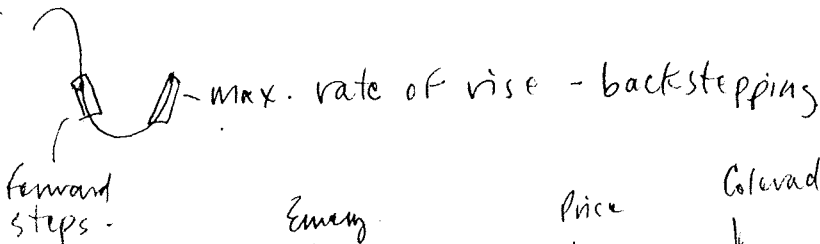 max. rate of rise - backstepping
forward
steps.
Emery
Price
Colorad